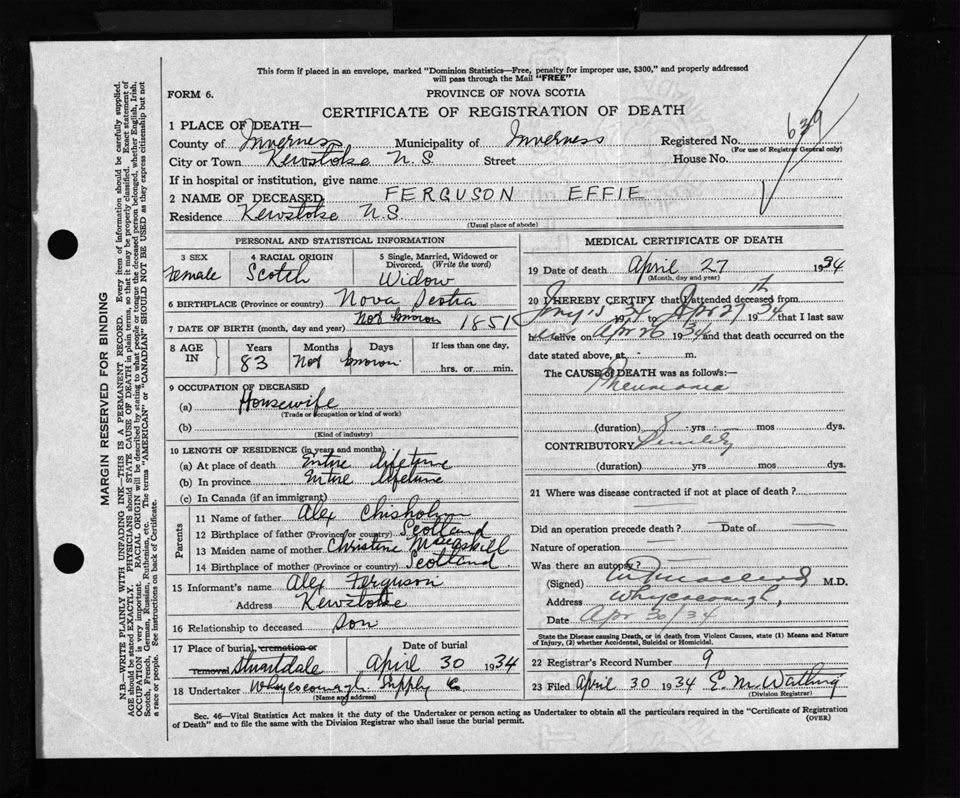 This form if placed in an envelope, marked "Dominion Statistics—Free, penalty for improper use, $300," and properly addressed
will pass through the Mail "FREE"
FORM 6.
PROVINCE OF NOVA SCOTIA
CERTIFICATE OF REGISTRATION OF DEATH
639
1 PLACE OF DEATH—
County of Inverness Municipality of Inverness Registered No.
(For use of Registrar General only)
City or Town Kewstoke N. S. Street House No.
If in hospital or institution, give name
2 NAME OF DECEASED FERGUSON EFFIE
Residence Kewstoke N.S.
(Usual place of abode)
PERSONAL AND STATISTICAL INFORMATION
3 SEX Female
4 RACIAL ORIGIN Scotch
5 Single, Married, Widowed or Divorced. (Write the word) Widow
6 BIRTHPLACE (Province or country) Nova Scotia
7 DATE OF BIRTH (month, day and year) Not known 1851
8 AGE IN Years 83 Months Not Days known If less than one day, hrs. or min.
9 OCCUPATION OF DECEASED
(a) Housewife
(Trade or occupation or kind of work)
(b)
(Kind of industry)
10 LENGTH OF RESIDENCE (in years and months)
(a) At place of death Entire lifetime
(b) In province Entire lifetime
(c) In Canada (if an immigrant)
Parents
11 Name of father Alex Chisholm
12 Birthplace of father (Province or country) Scotland
13 Maiden name of mother Christine McAskill
14 Birthplace of mother Scotland
15 Informant's name Alex Ferguson
Address Kewstoke
16 Relationship to deceased Son
17 Place of burial, cremation or removal Stuartdale
Date of burial April 30 1934
18 Undertaker Whycocomagh Supply Co
(Name and address)
MEDICAL CERTIFICATE OF DEATH
19 Date of death April 27 1934
(Month, day and year)
20 I HEREBY CERTIFY that I attended deceased from
1934 to Apr 27th 1934 that I last saw
h er alive on Apr 26 1934 and that death occurred on the
date stated above, at - m.
The CAUSE of DEATH was as follows:—
Pneumonia
(duration) 8 yrs mos dys.
CONTRIBUTORY
(duration) yrs mos dys.
21 Where was disease contracted if not at place of death?
Did an operation precede death? Date of
Nature of operation
Was there an autopsy?
(Signed) M.D.
Address Whycocomagh,
Date Apr 30/34
State the Disease causing Death, or in death from Violent Causes, state (1) Means and Nature
of Injury, (2) whether Accidental, Suicidal or Homicidal.
22 Registrar's Record Number 9
23 Filed April 30 1934 E. M. Watling
(Division Registrar)
Sec. 46—Vital Statistics Act makes it the duty of the Undertaker or person acting as Undertaker to obtain all the particulars required in the "Certificate of Registration
of Death" and to file the same with the Division Registrar who shall issue the burial permit.
(OVER)
MARGIN RESERVED FOR BINDING
N.B.—WRITE PLAINLY WITH UNFADING INK—THIS IS A PERMANENT RECORD. Every item of information should be carefully supplied.
AGE should be stated EXACTLY. PHYSICIANS should STATE CAUSE OF DEATH in plain terms, so that it may be properly classified. Exact statement of
OCCUPATION is very important. RACIAL ORIGIN will be described by stating to what people or tongue the deceased person belonged, whether English, Irish,
Scotch, French, German, Russian, Ruthenian, etc. The terms "AMERICAN" or "CANADIAN" SHOULD NOT BE USED as they express citizenship but not
a race or people. See instructions on back of Certificate.